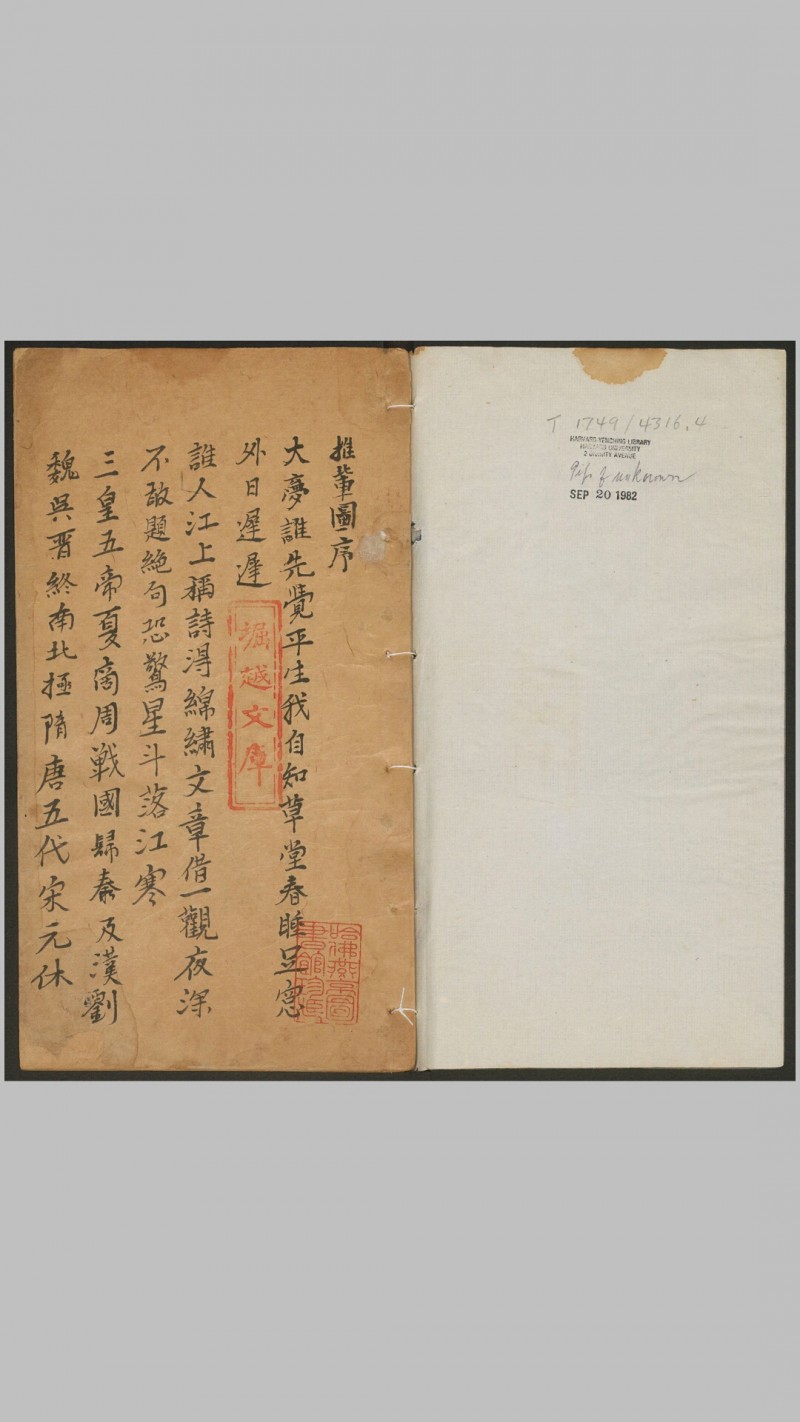 推輩圖序
大夢誰先覺平生我自知草堂春睡足窓
外日遲遲
誰人江上稱詩得綿繡文章借一觀夜深
不敢題絕句恐驚星斗落江寒
三皇五帝夏商周戰國歸秦及漢劉
魏吳晋終南北極隋唐五代宋元休
堀越文庫
哈佛燕京圖
書館珍藏
T 1749/4316.4
HARVARD-YENCHING LIBRARY
HARVARD UNIVERSITY
2 DIVINITY AVENUE
Gift of unknown
SEP 20 1982